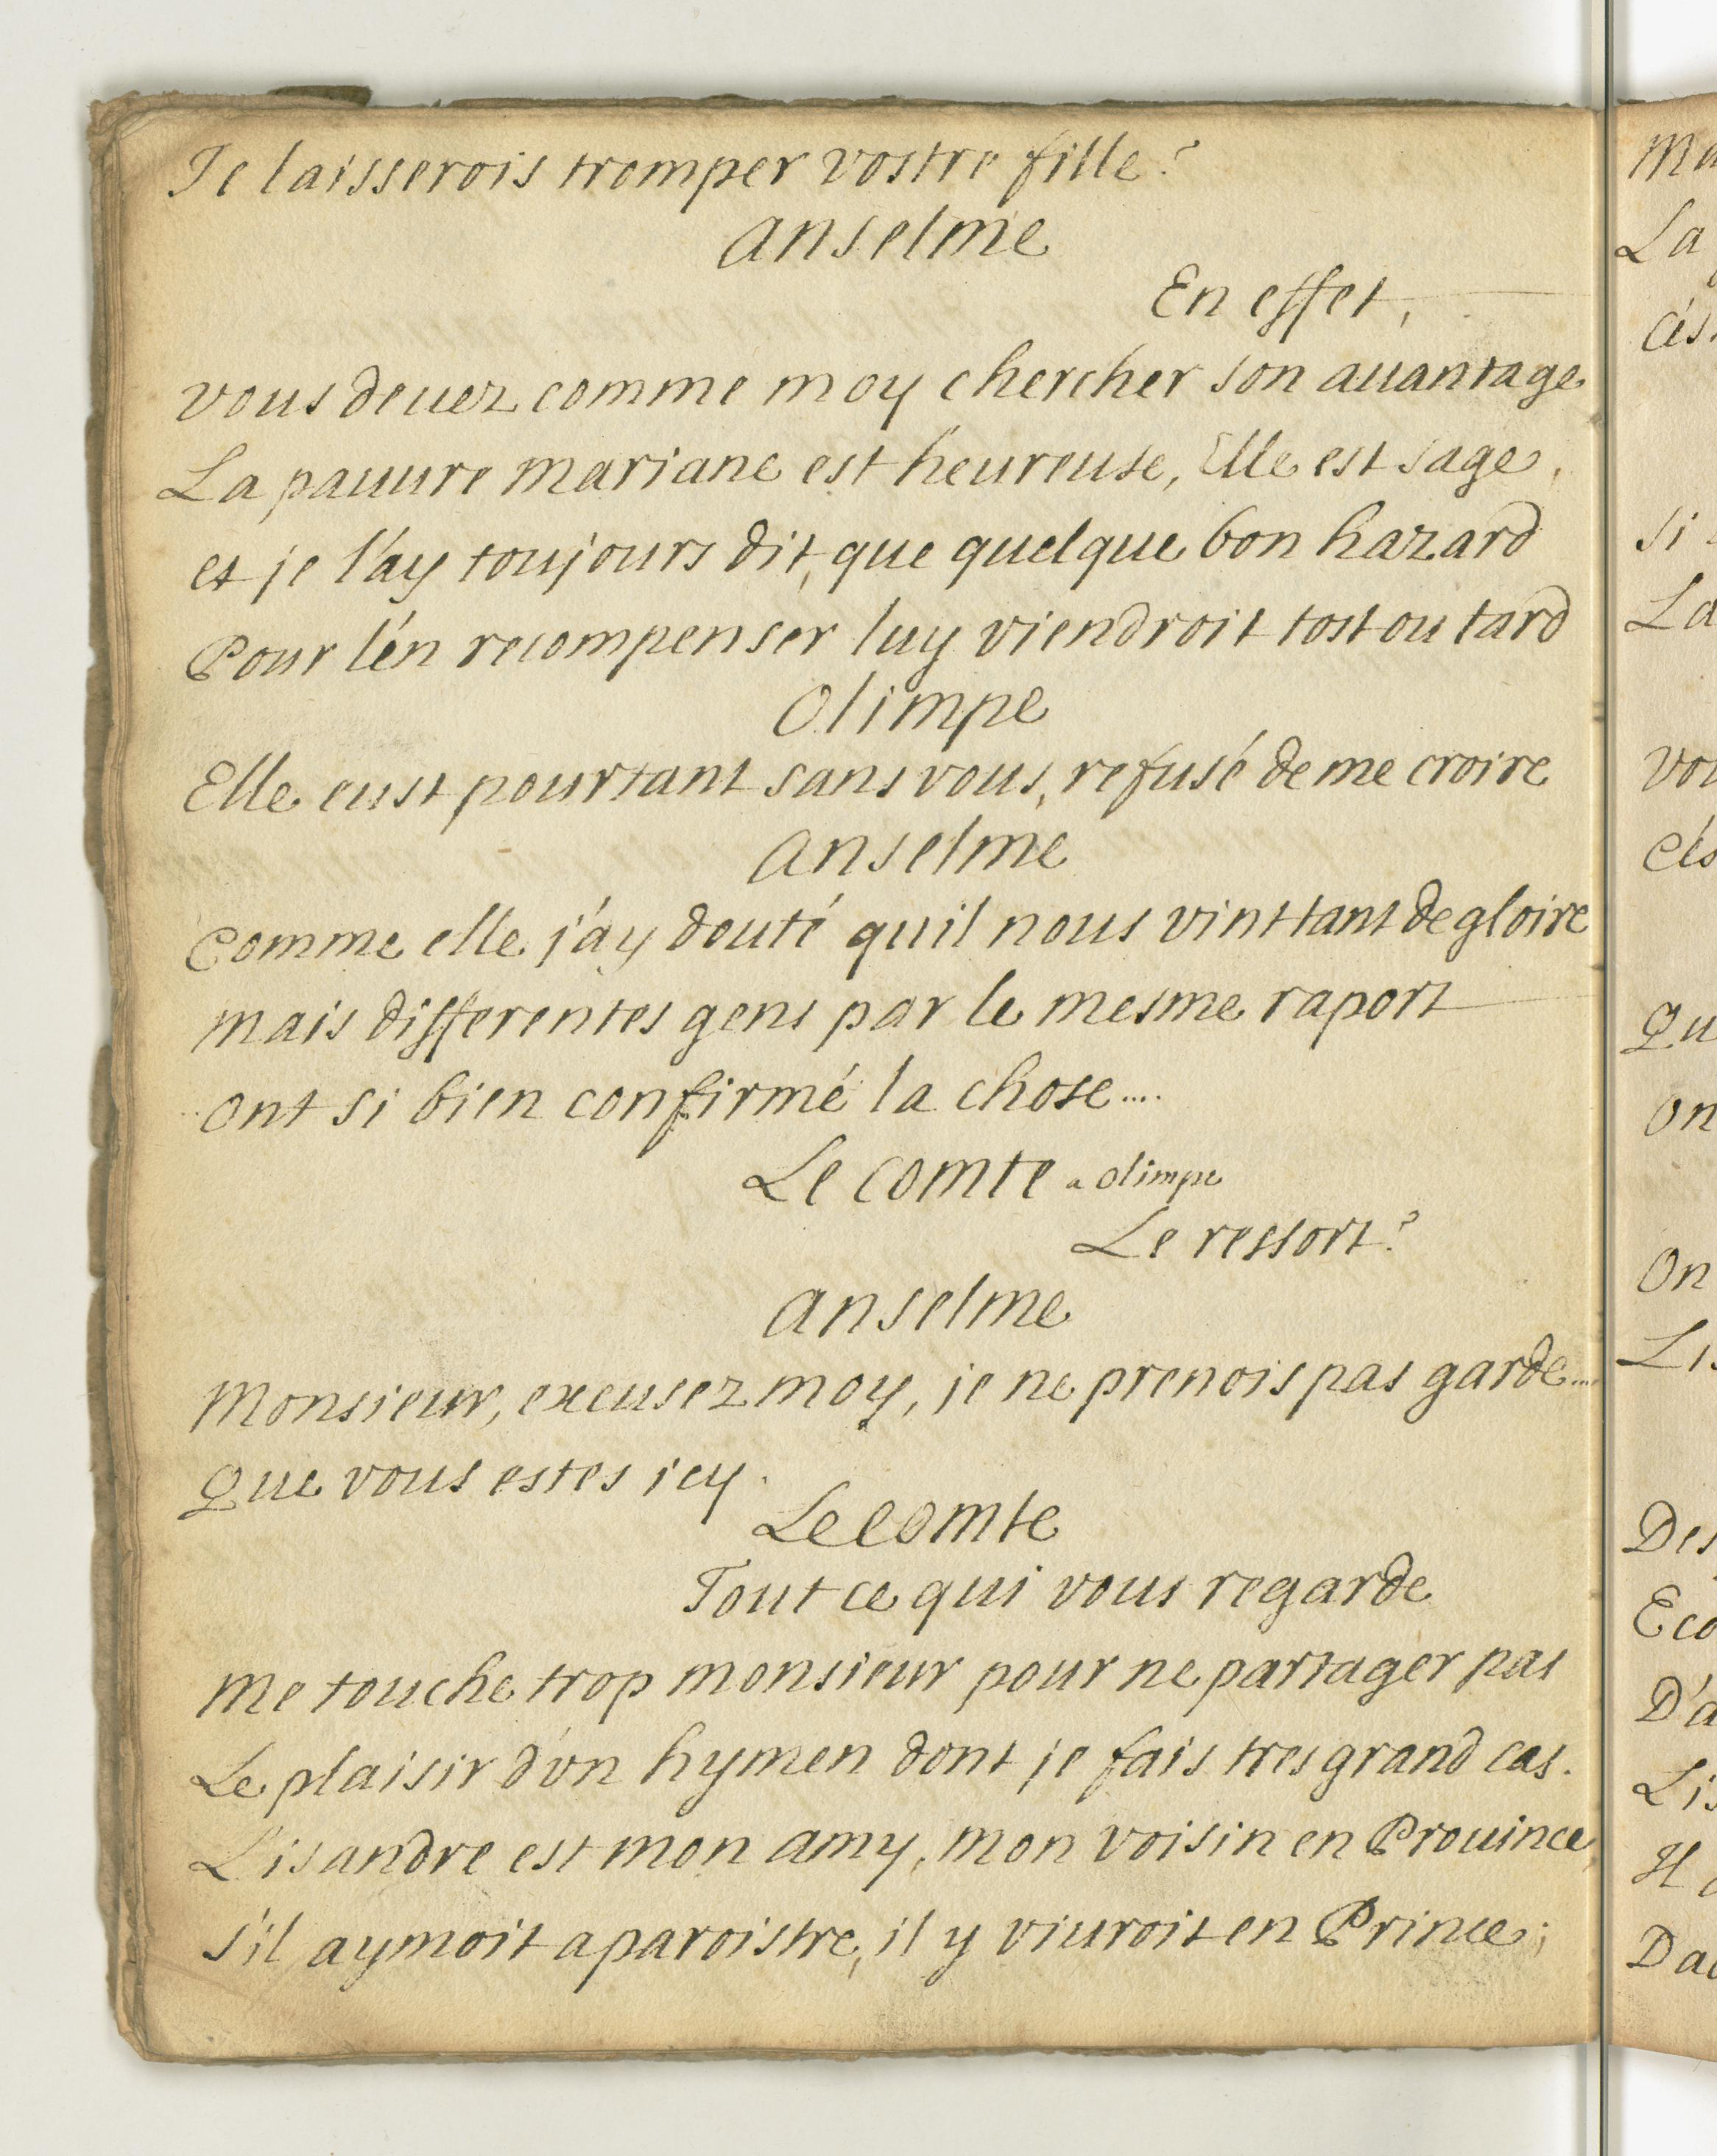 Je laisserois tromper vostre fille?
anselme
En effet,
vous deuez comme moy chercher son auantage
La pauure mariane est heureuse, Elle est sage,
et je l'ay toujours dit, que quelque bon hazard
Pour l'en recompenser luy viendroit tost ou tard
Olimpe
Elle eust pourtant sans vous, refusé de me croire
anselme
Comme elle j'ay douté quil nous vint tant de gloire
mais differentes gens par le mesme raport
ont si bien confirmé la chose....
Le comte a olimpe
Le ressort?
anselme
Monsieur, excusez moy, je ne prenois pas garde...
Que vous estes icy.
Le comte
Tout ce qui vous regarde
me touche trop monsieur pour ne partager pas
Le plaisir d'un hymen dont je fais tres grand cas.
L'isandre est mon amy, mon voisin en Prouince,
s'il aymoit a paroistre, il y viuroit en Prince;
Ma
La
Si
La
vou
Qu
on
On
Lis
Des
Eco
D'a
Lis